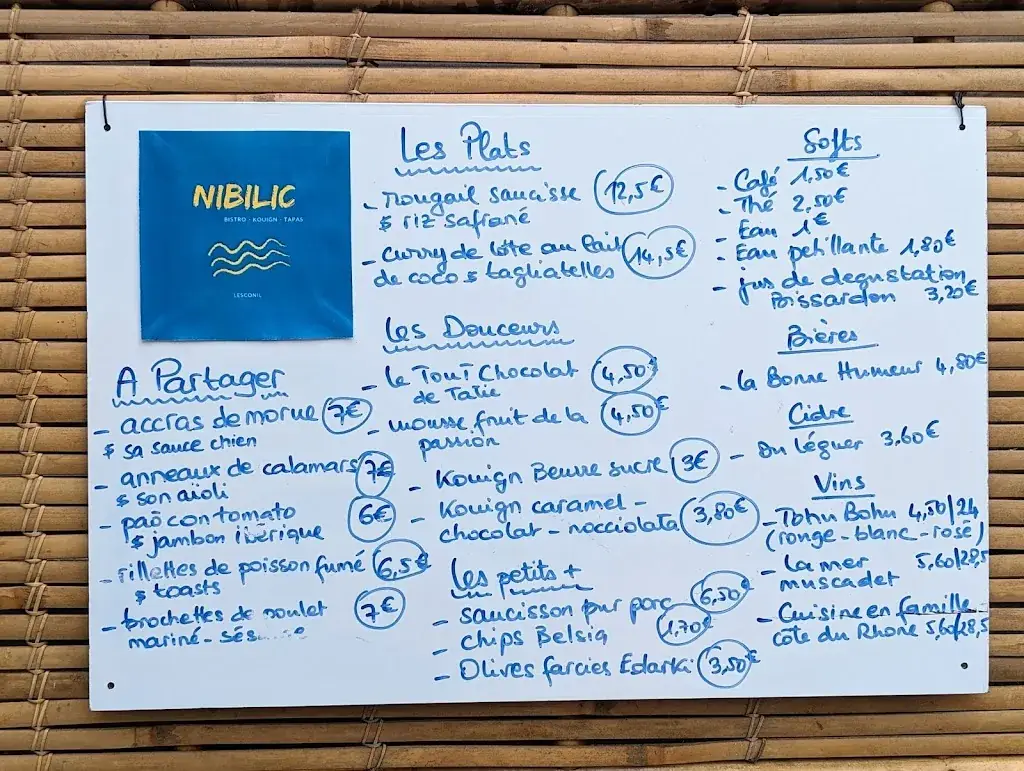 NIBILIC
BISTRO - KOUIGN - TAPAS
LESCONIL
A Partager
- accras de morue 7€
& sa sauce chien
- anneaux de calamars 7€
& son aïoli
- paõ con tomato 6€
& jambon ibérique
- rillettes de poisson fumé 6,5€
& toasts
- brochettes de poulet 7€
mariné -
Les Plats
- rougail saucisse 12,5€
& riz safrané
- curry de lôte au lait 14,5€
de coco & tagliatelles
Les Douceurs
- le Tout Chocolat 4,50€
de Tatie
- mousse fruit de la 4,50€
passion
- Kouign Beurre sucre 3€
- Kouign caramel -
chocolat - nocciolata 3,80€
Les petits +
- saucisson pur porc 6,50€
- chips Belsia 1,70€
- Olives farcies Edarki 3,50€
Softs
- Café 1,50€
- Thé 2,50€
- Eau 1€
- Eau pétillante 1,80€
- jus de degustation
Poissardon 3,20€
Bières
- la Bonne Humeur 4,80€
Cidre
- Du Léguer 3,60€
Vins
- Tohu Bohu 4,50/24
(rouge - blanc - rosé)
- La mer 5,60/28,5
muscadet
- Cuisine en famille
côte du Rhone 5,60/28,5